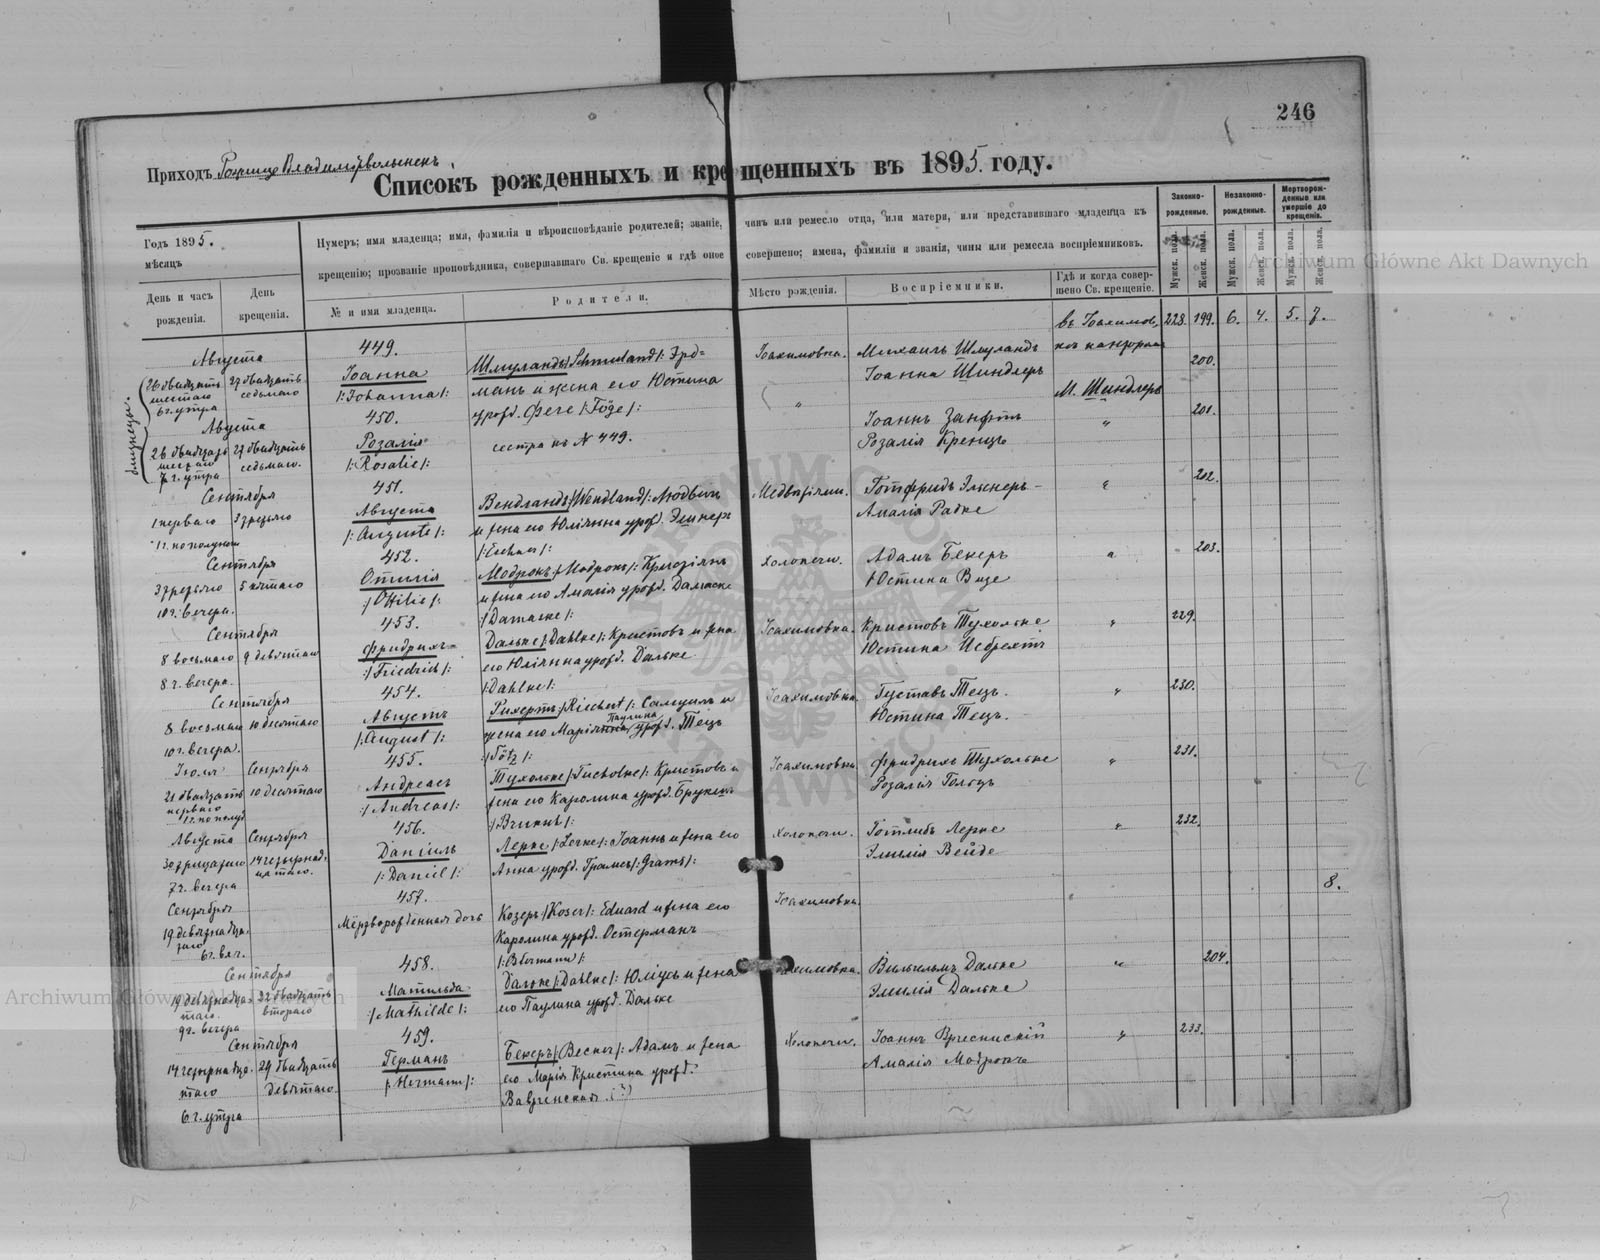 246
Приходъ Рожище Владимірволынскъ
Списокъ рожденныхъ и крещенныхъ въ 1895 году.
Годъ 1895.
мѣсяцъ
Нумеръ; имя младенца; имя, фамилія и вѣроисповѣданіе родителей; званіе, чинъ или ремесло отца, или матери, или представившаго младенца къ
крещенію; прозваніе проповѣдника, совершавшаго Св. крещеніе и гдѣ оное совершено; имена, фамиліи и званія, чины или ремесла воспріемниковъ.
Законно-рожденные.
Незаконно-рожденные.
Мертворожденные или умершіе до крещенія.
День и часъ рожденія.
День крещенія.
№ и имя младенца.
Родители.
Мѣсто рожденія.
Воспріемники.
Гдѣ и когда совершено Св. крещеніе.
Мужск. пола.
Женск. пола.
Мужск. пола.
Женск. пола.
Мужск. пола.
Женск. пола.
въ Іоахимов. 228. 199. 6. 4. 5. 7.
близнецы.
Августа 449. Шмуландъ /Schmuland/: Эрд= Іоахимовка. Михаилъ Шмуландъ
26 двадцать шестаго 27 двадцать седьмаго Іоанна манъ и жена его Юстина Іоанна Шиндлеръ 200.
6 г. утра /:Johanna/: урожд. Феге /:Föge/: М. Шиндлеръ
Августа 450. сестра къ № 449. " Іоаннъ Занфтъ " 201.
26 двадцать шестаго 27 двадцать седьмаго. Розалія Розалія Кренцъ
7 г. утра /:Rosalie/:
Сентября 451. Вендландъ /Wendland/: Людвигъ Медвѣжин. Готфридъ Эльнеръ " 202.
1 перваго 3 третьяго Августа и жена его Юліянна урожд. Амалія Радке
1 г. по полуноч /:Auguste/:
Сентября 452. Модрокъ /Модрокъ/: Христіянъ Холопечи. Адамъ Бекеръ " 203.
3 третьяго 5 пятаго Отилія и жена его Амалія урожд. Дамаске Юстина Визе
10 г. вечера. /:Ottilie/: /:Damaske/:
Сентября 453. Дальке /Dahlke/: Кристовъ и жена Іоахимовка. Кристовъ Тухольке " 229.
8 восьмаго 9 девятаго Фридрихъ его Юліянна урожд. Дальке Юстина
8 г. вечера. /:Friedrich/: /:Dahlke/:
Сентября 454. Рихертъ /Riechert/: Самуилъ и Іоахимовка. Густавъ Тецъ. " 230.
8 восьмаго 10 десятаго Августъ жена его Паулина урожд. Тецъ Юстина Тецъ.
10 г. вечера. /:August/: /:Götz/:
Іюля Сентября 455. Тухольке /Tucholke/: Кристовъ и Іоахимовка. Фридрихъ Тухольке " 231.
21 двадцать перваго 10 десятаго Андреасъ жена его Каролина урожд. Розалія Гольцъ
1 г. по полуд /:Andreas/:
Августа Сентября 456. Лерке /Lerke/: Іоаннъ и жена его Холопечи. Готлибъ Лерке " 232.
30 тридцатаго 14 четырнадцатаго. Даніилъ Анна урожд. Грамсъ /:Grams/: Эмилія Вейде
7 г. вечера /:Daniel/:
Сентября 457. Козеръ /Koser/: Eduard и жена его Іоахимовка. " 8.
19 девятнадцатаго Мертворожденная дочь Каролина урожд. Остерманъ
6 г. веч.
Сентября 458. Дальке /Dahlke/: Юліусъ и жена Іоахимовка. Вильгельмъ Дальке " 204.
19 девятнадцатаго. 22 двадцать втораго Матильда его Паулина урожд. Дальке Эмилія Дальке
9 г. вечера /:Mathilde/:
Сентября 459. Бекеръ /Becker/: Адамъ и жена Холопечи. Іоаннъ " 233.
14 четырнадцатаго 29 двадцать девятаго. Германъ его Марія Кристина урожд. Амалія Модрокъ
6 г. утра /:Hermann/: (?)
Archiwum Główne Akt Dawnych
Archiwum Główne Akt Dawnych